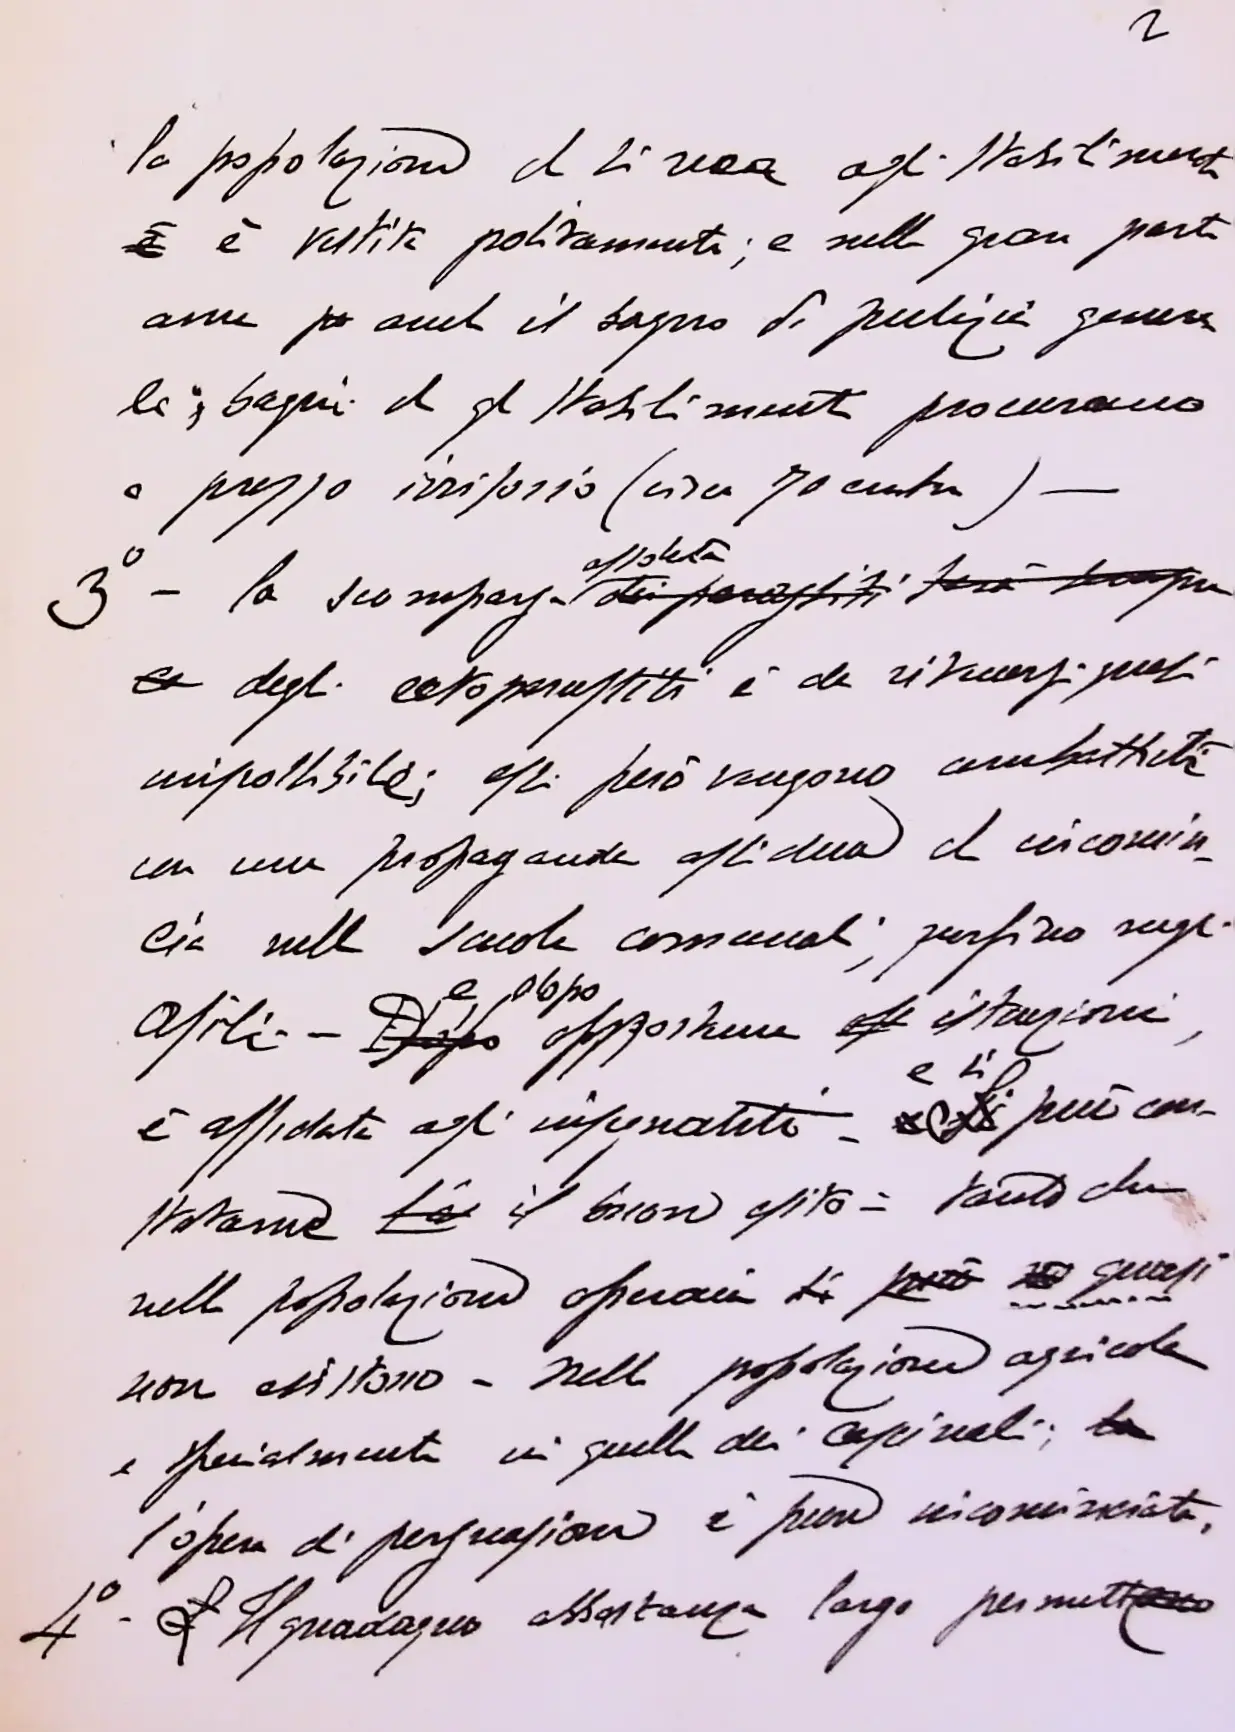 2
la popolazione che si reca agli stabilimenti
è è vestita politamente; e nella gran parte
ama anche il bagno di pulizia genera
le; bagni che gli stabilimenti procurano
a prezzo irrisorio (circa 70 centm) —
assoluta
3° - la scomparsa dei parassiti sarà sempre
degli ectoparassiti è da ritenersi quasi
impossibile; essi però vengono combattuti
con una propaganda assidua che incomin-
cia nelle scuole comunali; persino negli
e, dopo
Asili. - Dopo opportune istruzioni,
e si
è affidata agli insegnanti - può con-
statarne il buon esito = tanto che
nella popolazione operaia si può quasi
non esistono - nella popolazione agricola
e specialmente in quella dei cascinali; la
l'opera di persuasione è pure incominciata,
4° - Il guadagno abbastanza largo permettono